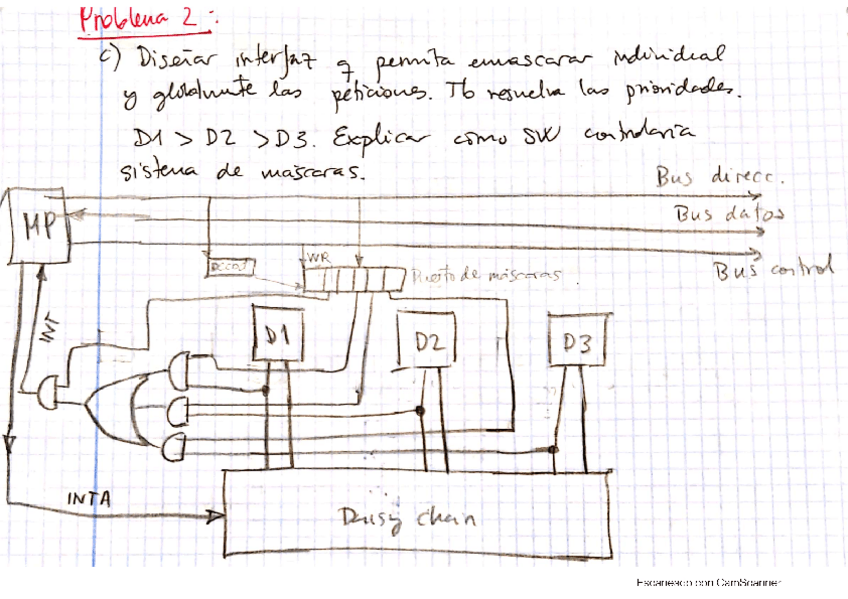 Problema 2:
c) Diseñar interfaz q permita enmascarar individual
y globalmnte las peticiones. Tb resuelva las prioridades.
D1 > D2 > D3. Explicar como SW controlaría
sistema de máscaras.
Bus direcc.
MP
Bus datos
WR
Bus control
Puerto de máscaras
INT
D1
D2
D3
INTA
Daisy chain
Escaneado con CamScanner